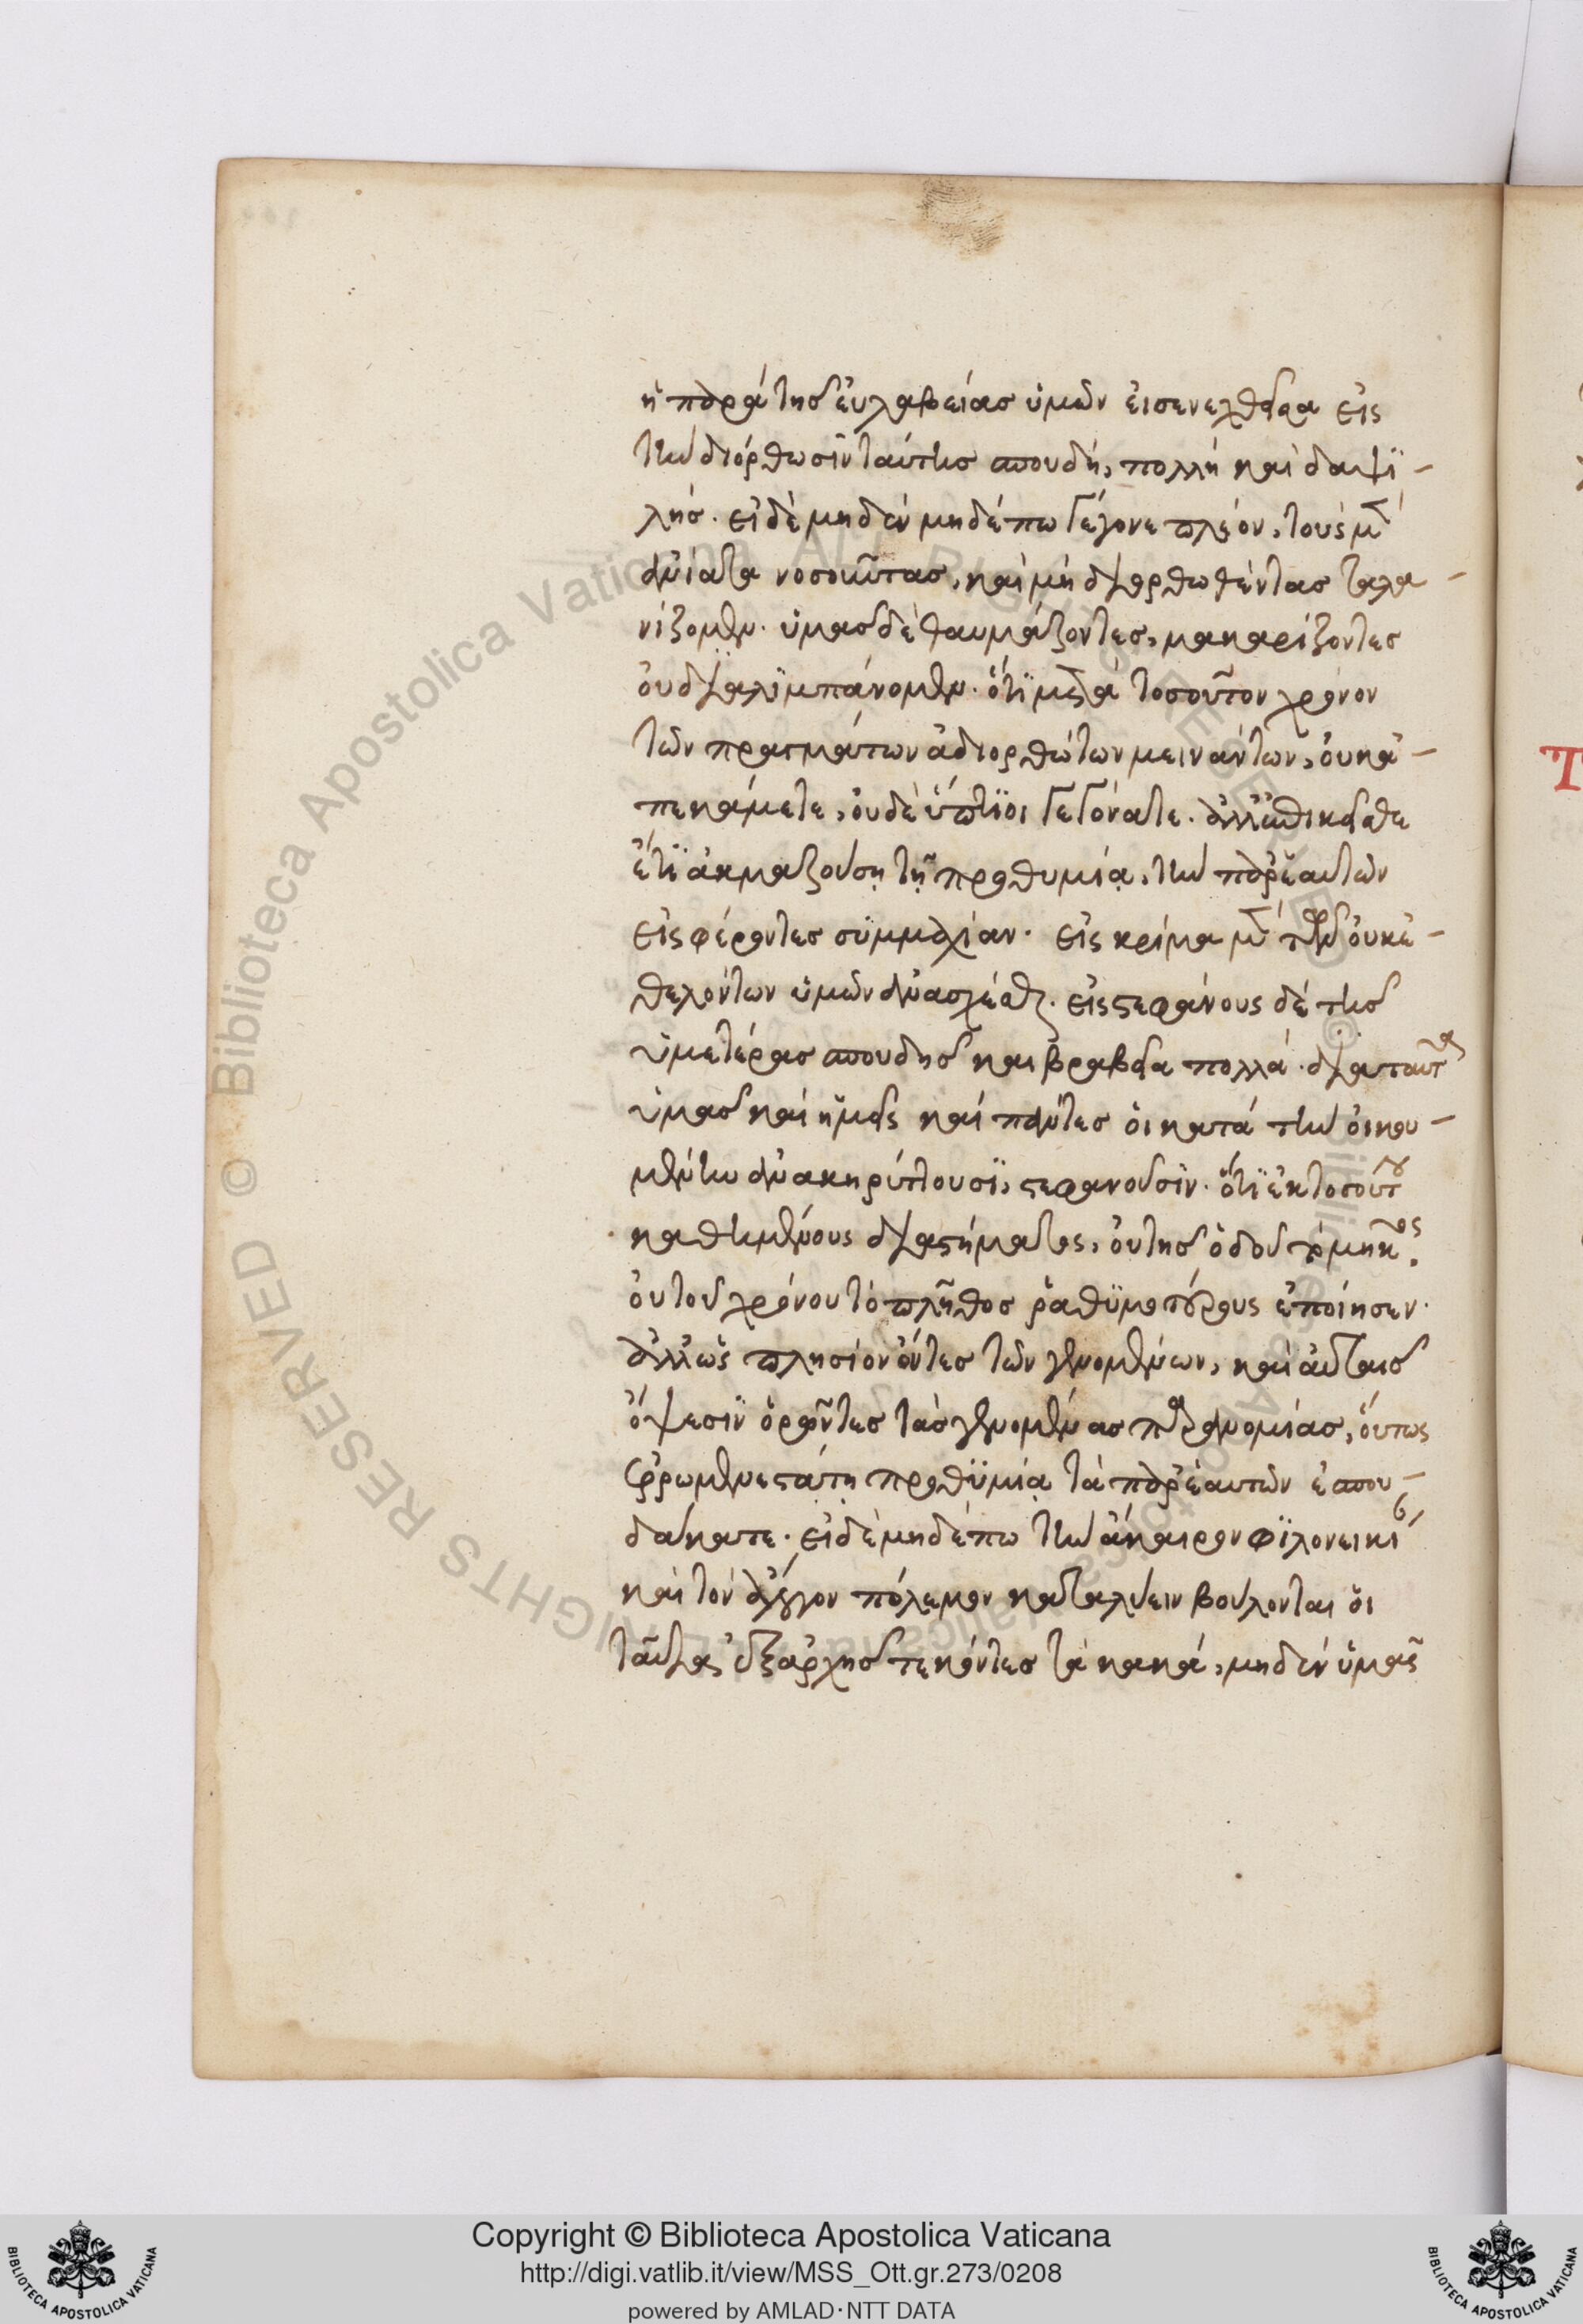 ἡ παρὰ τῆς εὐλαβείας ὑμῶν εἰσενεχθεῖσα εἰς
τὴν διόρθωσιν ταύτης σπουδὴ, πολλὴ καὶ δαψϊ-
λής. εἰ δὲ μηδὲν μηδέπω γέγονε πλέον, τοὺς μὲν
ἀνίατα νοσοῦντας, καὶ μὴ διορθωθέντας ταλα-
νίζομεν. ὑμᾶς δὲ θαυμάζοντες, μακαρίζοντες
οὐ διαλϊμπάνομεν. ὅτϊ μετὰ τοσοῦτον χρόνον
τῶν πραγμάτων ἀδιορθώτων μεινάντων, οὐκ ἀ-
πεκάμετε, οὐδὲ ὕπτϊοι γεγόνατε. ἀλλ'
ἔτϊ ἀκμαζούσῃ τῇ προθυμίᾳ, τὴν παρ' ἑαυτῶν
εἰσφέροντες συμμαχίαν. εἰς κρίμα μὲν τῶν οὐκ ἐ-
θελόντων ὑμῶν ἀνασχέσθαι. εἰς στεφάνους δὲ τῆς
ὑμετέρας σπουδῆς καὶ βραβεῖα πολλά. διὰ ταῦτα
ὑμᾶς καὶ ἡμεῖς καὶ πάντες οἱ κατὰ τὴν οἰκου-
μένην ἀνακηρύττουσϊ, στεφανοῦσϊν. ὅτϊ ἐκ τοσούτου
καθημένους διαστήματος, οὐ τῆς ὁδοῦ τὸ μῆκος.
οὐ τοῦ χρόνου τὸ πλῆθος ῥαθϋμοτέρους ἐποίησεν.
ἀλλ' ὡς πλησίον ὄντες τῶν γινομένων, καὶ αὐταῖς
ὄψεσϊν ὁρῶντες τὰς γινομένας παρανομίας, οὕτως
ἐρρωμενεστάτῃ προθϋμίᾳ τὰ παρ' ἑαυτῶν ἐσπου-
δάκατε. εἰ δὲ μηδέπω τὴν ἄκαιρον φϊλονεικίαν
καὶ τὸν ἄλογον πόλεμον καταλύειν βούλονται οἱ
ταῦτα ἐξ ἀρχῆς τεκόντες τὰ κακά, μηδὲν ὑμᾶς
Copyright © Biblioteca Apostolica Vaticana
http://digi.vatlib.it/view/MSS_Ott.gr.273/0208
powered by AMLAD·NTT DATA